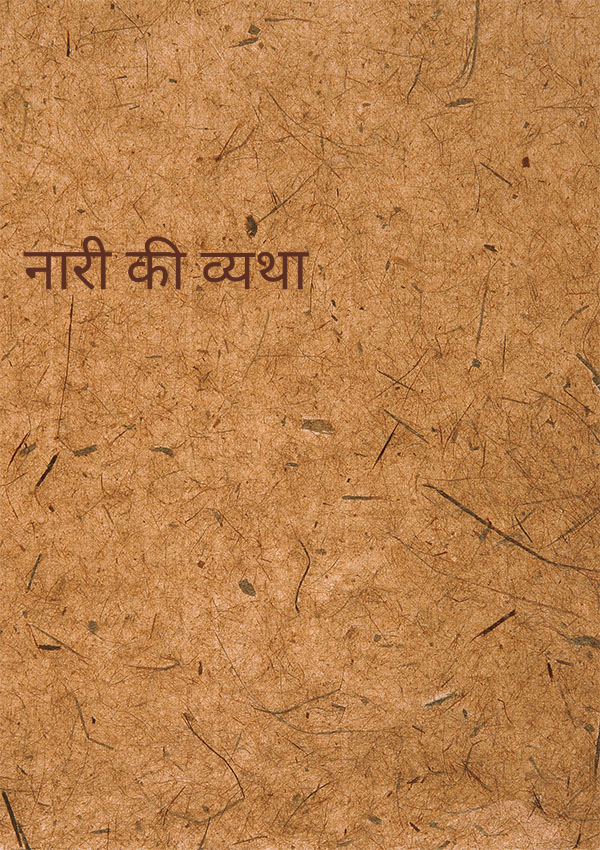 नारी की व्यथा